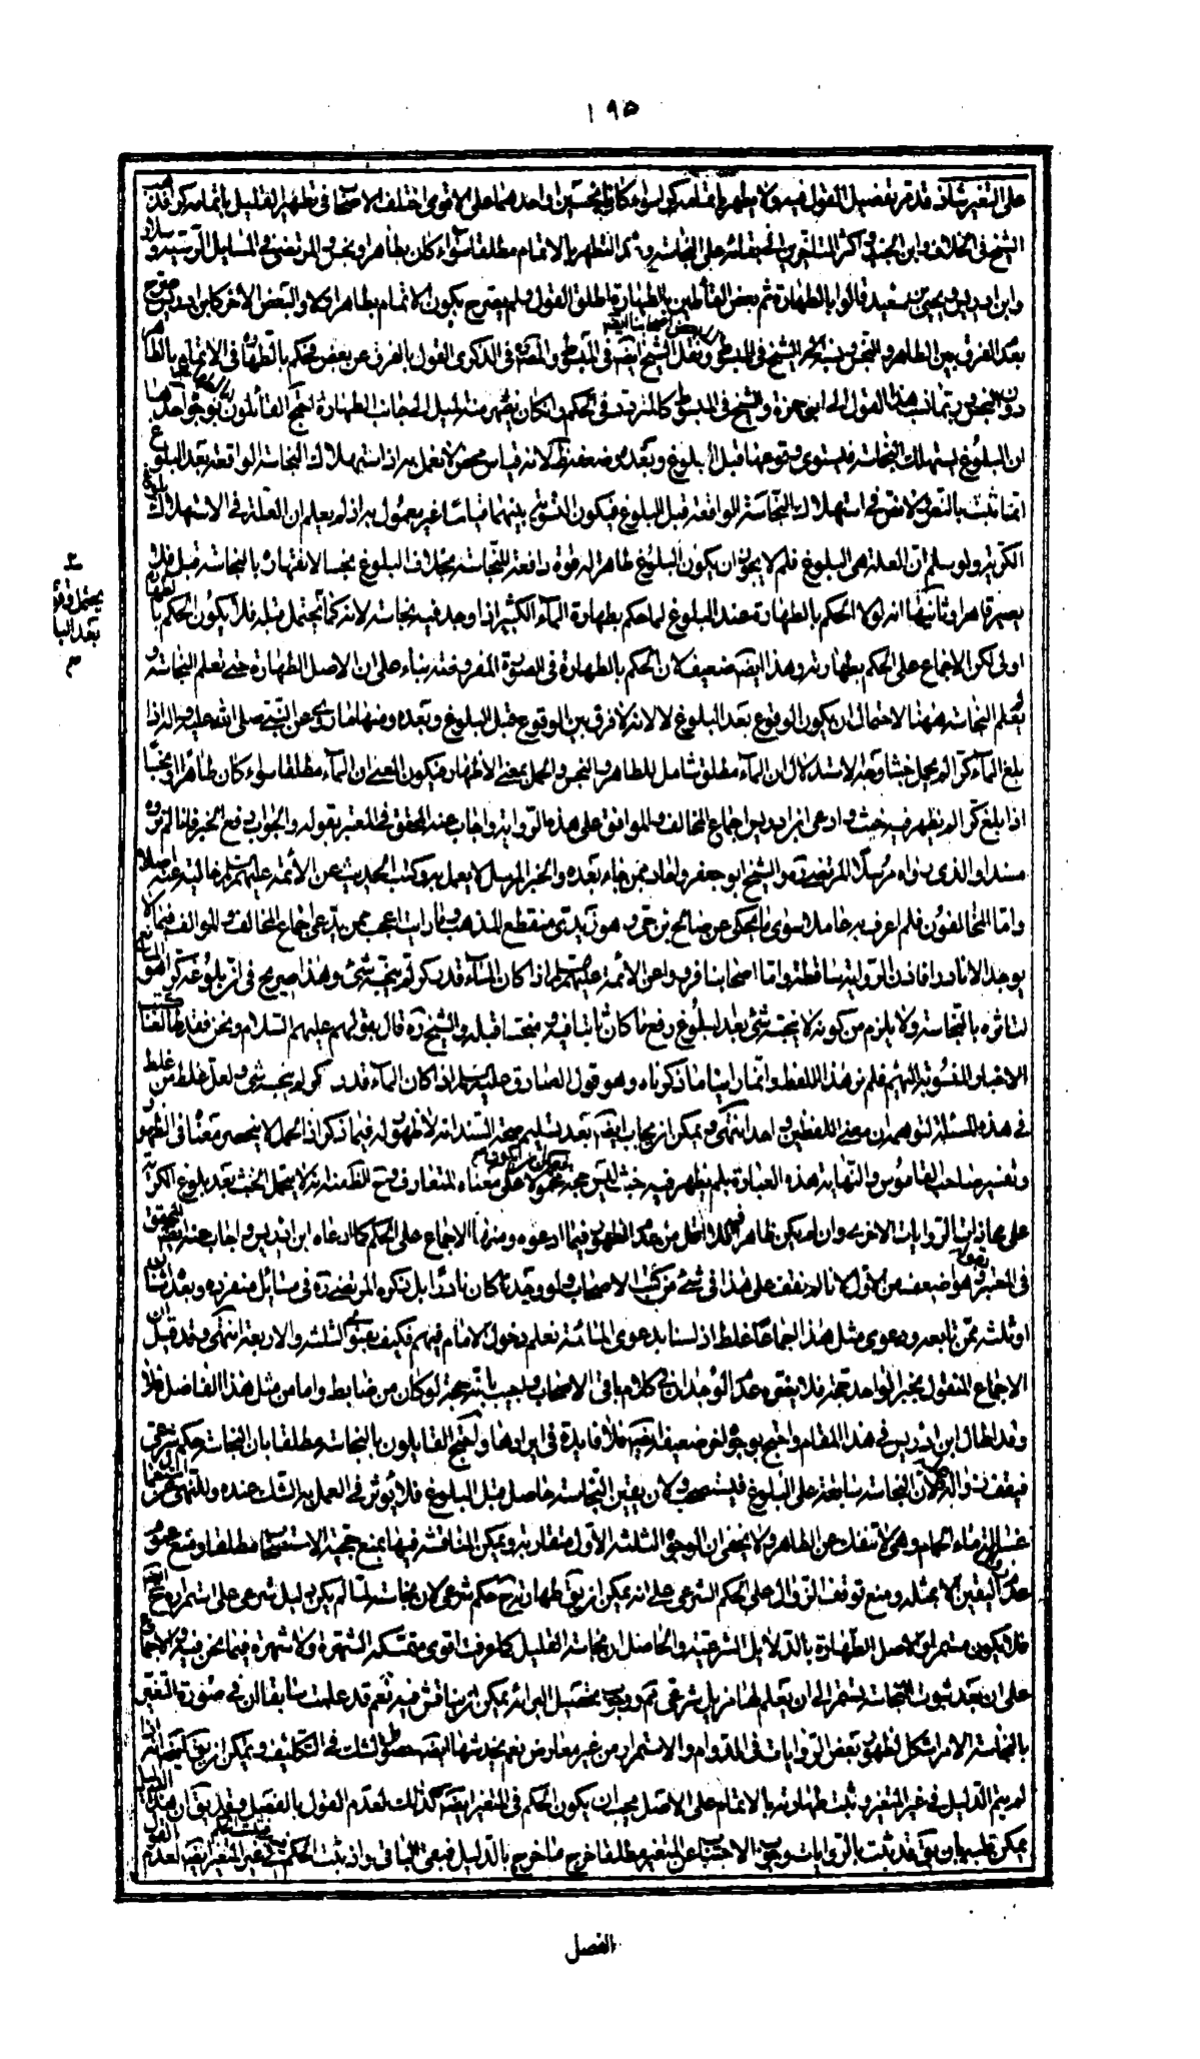 ١٩٥
على التغير شاذ وقد مر تفصيل القول فيه ولا يطهر باتمامه كرا سواء كانا نجسين او احدهما على الاقوى اختلف الاصحاب في تطهير القليل باتمامه كرا فذهب
الشيخ في الخلاف وابن الجنيد و اكثر المتأخرين الى بقائه على النجاسة و عدم التطهير بالاتمام مطلقا سواء كان بطاهر او نجس و المرتضى في المسايل الرسية و سلار
وابن ادريس و يحيى بن سعيد قالوا بالطهارة ثم بعض القائلين بالطهارة اطلق القول ولم يصرح بكون الاتمام بطاهر او لا و البعض الاخر كابن ادريس صرح
بعدم الفرق بين الطاهر و النجس و نسبه الشيخ في المبسوط الى بعض اصحابنا و نقل الشيخ ايضا في المبسوط و المصنف في الذكرى القول بالفرق عن بعض فحكم بالطهارة في الاتمام بالطاهر
دون النجس و ربما نسب هذا القول الى ابن حمزة و الشيخ في المبسوط كالمتردد في الحكم و ان كان يفهم منه الميل الى جانب الطهارة احتج القائلون بوجوه احدها
ان البلوغ يستهلك النجاسة فيستوى وقوعها قبل البلوغ و بعده و ضعفه ظ لانه قياس محض لا نعمل به اذ استهلاك النجاسة الواقعة بعد البلوغ
انما ثبت بالنص و لا نص في استهلاك النجاسة الواقعة قبل البلوغ فيكون التسوية بينهما قياسا غير معمول به اذ لم يعلم ان العلة في الاستهلاك بلوغ
الكرية و لو سلم ان العلة هي البلوغ فلم لا يجوز ان يكون البلوغ طاهرا له قوة دافعة للنجاسة بخلاف البلوغ نجسا لانقهاره بالنجاسة قبل فلا
يصير قاهرا و ثانيها انه لو لا الحكم بالطهارة عند البلوغ لما حكم بطهارة الماء الكثير اذا وجد فيه نجاسة لانه كما يحتمل قبله فلا يكون الحكم بالطهارة
اولى لكن الاجماع على الحكم بطهارته و هذا ايضا ضعيف لان الحكم بالطهارة في الصورة المفروضة بناء على ان الاصل الطهارة حتى تعلم النجاسة و لم
يعلم النجاسة ههنا لاحتمال ان يكون الوقوع بعد البلوغ لا لانه لا فرق بين الوقوع قبل البلوغ و بعده و منها ما روى عن النبي صلى الله عليه و اله اذا
بلغ الماء كرا لم يحمل خبثا وجه الاستدلال ان الماء مطلق شامل للطاهر و النجس و الحمل بمعنى الاظهار فيكون المعنى ان الماء مطلقا سواء كان طاهرا او نجسا
اذا بلغ كرا لم يظهر فيه خبث و ادعى ابن ادريس اجماع المخالف و الموافق على هذه الرواية و اجاب عنه المحقق في المعتبر بقوله و الجواب دفع الخبر فانا لم نروه
مسندا و الذى رواه مرسلا المرتضى ره و الشيخ ابو جعفر و احاد ممن جاء بعده و الخبر المرسل لا يعمل به و كتب الحديث عن الائمة عليهم السلام خالية عنه اصلا
و اما المخالفون فلم اعرف به عاملا سوى ما يحكى عن ابن حي و هو زيدى منقطع المذهب و ما رايت اعجب ممن يدعى اجماع المخالف و الموالف فيما لا
يوجد الا نادرا فاذن الرواية ساقطة و اما اصحابنا فرووا عن الائمة عليهم السلام اذا كان الماء قدر كر لم ينجسه شيء و هذا صريح في ان بلوغه كرا هو المانع
لتاثره بالنجاسة و لا يلزم من كونه لا ينجسه شيء بعد البلوغ رفع ما كان ثابتا فيه و منجسا قبله و الشيخ ره قال بقولهم عليهم السلام و نحن فقد طالعنا كتب
الاخبار المنسوبة اليهم فلم نر هذا اللفظ و انما راينا ما ذكرناه و هو قول الصادق عليه السلام اذا كان الماء قدر كر لم ينجسه شيء و لعل غلط من غلط
في هذه المسئلة لتوهمه ان معنى اللفظين واحد انتهى و يمكن ان يجاب ايضا بعد تسليم صحة السند انه لا ظهور له فيما ذكر اذ الحمل لا ينحصر معناه في الظهور و
و تفسير صاحب القاموس و النهاية هذه العبارة بلم يظهر فيه خبث ليس حجة محمولا على معناه المتعارف لا يحتمل الخبث بعد بلوغ الكرية
على محاذاة الروايات الاخرى و ان لم يكن ظاهرا فلا اقل من عدم الظهور فيما ادعوه و منها الاجماع على الحكم كما ادعاه ابن ادريس و اجاب عنه المحقق
في المعتبر و هو اضعف من الاول لانا لم نقف على هذا في شيء من كتب الاصحاب و لو وجد كان نادرا بل ذكره المرتضى ره في مسائل منفردة و بعده اثنان
او ثلثة ممن تابعه و دعوى مثل هذا اجماعا غلط اذ لسنا بدعوى المائة نعلم دخول الامام فيهم فكيف بفتوى الثلثة و الاربعة انتهى و قد قيل ان
الاجماع المنقول بخبر الواحد حجة فلا يضره عدم الوجدان في كلام باقى الاصحاب و اجيب بانه حجة لو كان من ضابط و اما من مثل هذا الفاضل فلا
و قد اطال ابن ادريس في هذا المقام و احتج بوجوه اخر ضعيفة ايضا فلا فايدة في ايرادها و احتج القايلون بالنجاسة مطلقا بان النجاسة حكم شرعى
فيقف زوالها و لان النجاسة سابقة على البلوغ فيستصحب و لان يقين النجاسة حاصل قبل البلوغ فلا يؤثر في العمل به الشك عنده و للنهى عن
غسالة ماء الحمام و هى لا تنفك عن الطاهر و لا يخفى ان الوجوه الثلثة الاول متقاربة و يمكن المناقشة فيها بمنع حجية الاستصحاب مطلقا و منع عموم
اليقين الا بمثله و منع توقف الزوال على الحكم الشرعى على انه يمكن ان يقال طهارته ح حكم شرعى لان نجاسته لما لم يكن دليل شرعى على استمراره ح
فلا يكون مستمرا و الاصل الطهارة بالدلايل الشرعية و الحاصل ان نجاسة القليل كما عرفت اقوى متمسكه الشهرة و لا شهرة فيما نحن فيه و لا اجماع
على ان بعد ثبوت النجاسة يستمر الى ان يعلم لها مزيل شرعى نعم وجوب تحصيل البرائة يمكن ان يناقش فيه نعم قد علمت سابقا ان في صورة التغير
بالنجاسة الامر اشكل لظهور بعض الروايات في الدوام و الاستمرار من غير معارض نعم يخدشها ايضا حصول الشك في التكليف و يمكن ان يقال ايضا انه اذا
لم يتم الدليل في غير المتغير و ثبت طهارته بالاتمام على الاصل يجب ان يكون الحكم في المتغير ايضا كذلك لعدم القول بالفصل و قد يقال ان هذا الدليل
يمكن قلبه بان يقال قد ثبت بالروايات وجوب الاجتناب عن المتغير مطلقا خرج ما خرج بالدليل فبقى الباقى و اذا ثبت الحكم فيه ثبت الحكم في غير المتغير ايضا لعدم القول
يحتمل وقو
بعد البا
الفصل